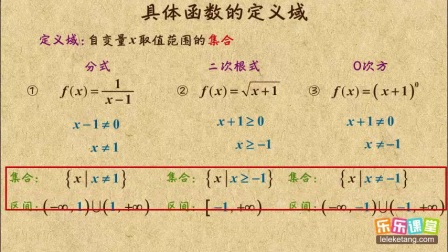 具体函数的定义域
定义域:自变量x取值范围的集合
分式 二次根式 0次方
① f(x)=1/(x-1) ② f(x)=√(x+1) ③ f(x)=(x+1)⁰
x-1≠0 x+1≥0 x+1≠0
x≠1 x≥-1 x≠-1
集合: {x|x≠1} 集合: {x|x≥-1} 集合: {x|x≠-1}
区间: (-∞,1)∪(1,+∞) 区间: [-1,+∞) 区间: (-∞,-1)∪(-1,+∞)
乐乐课堂
leleketang.com